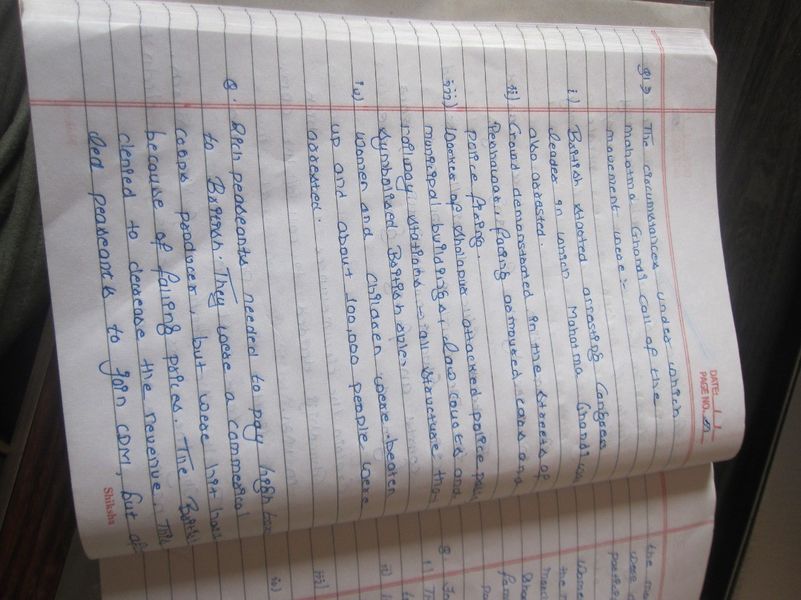 DATE: / /
PAGE NO.
Q1.> The circumstances under which
mahatma Ghandi Call of the
movement were:-
i) British started arresting Congress
leader in which Mahatma Ghandi
also arrested.
ii) Crowd demonstrated in the streets of
Peshawar, facing armoured cars and
police firing.
iii) Worker of Sholapur attacked police
municipal buildings, law courts and
railway stations - all structure tha
symbolised British
iv) Women and children were beaten
up and about 100,000 people were
arrested.
Q. Rich peaseants needed to pay high
to British. They were a commerical
crops producer, but were hit
because of falling prices. The Briti
denied to decrease the revenue. This
led peaseants to join CDM, but
Shiksha
the
were
Q.
i)
ii)
iii)
iv)